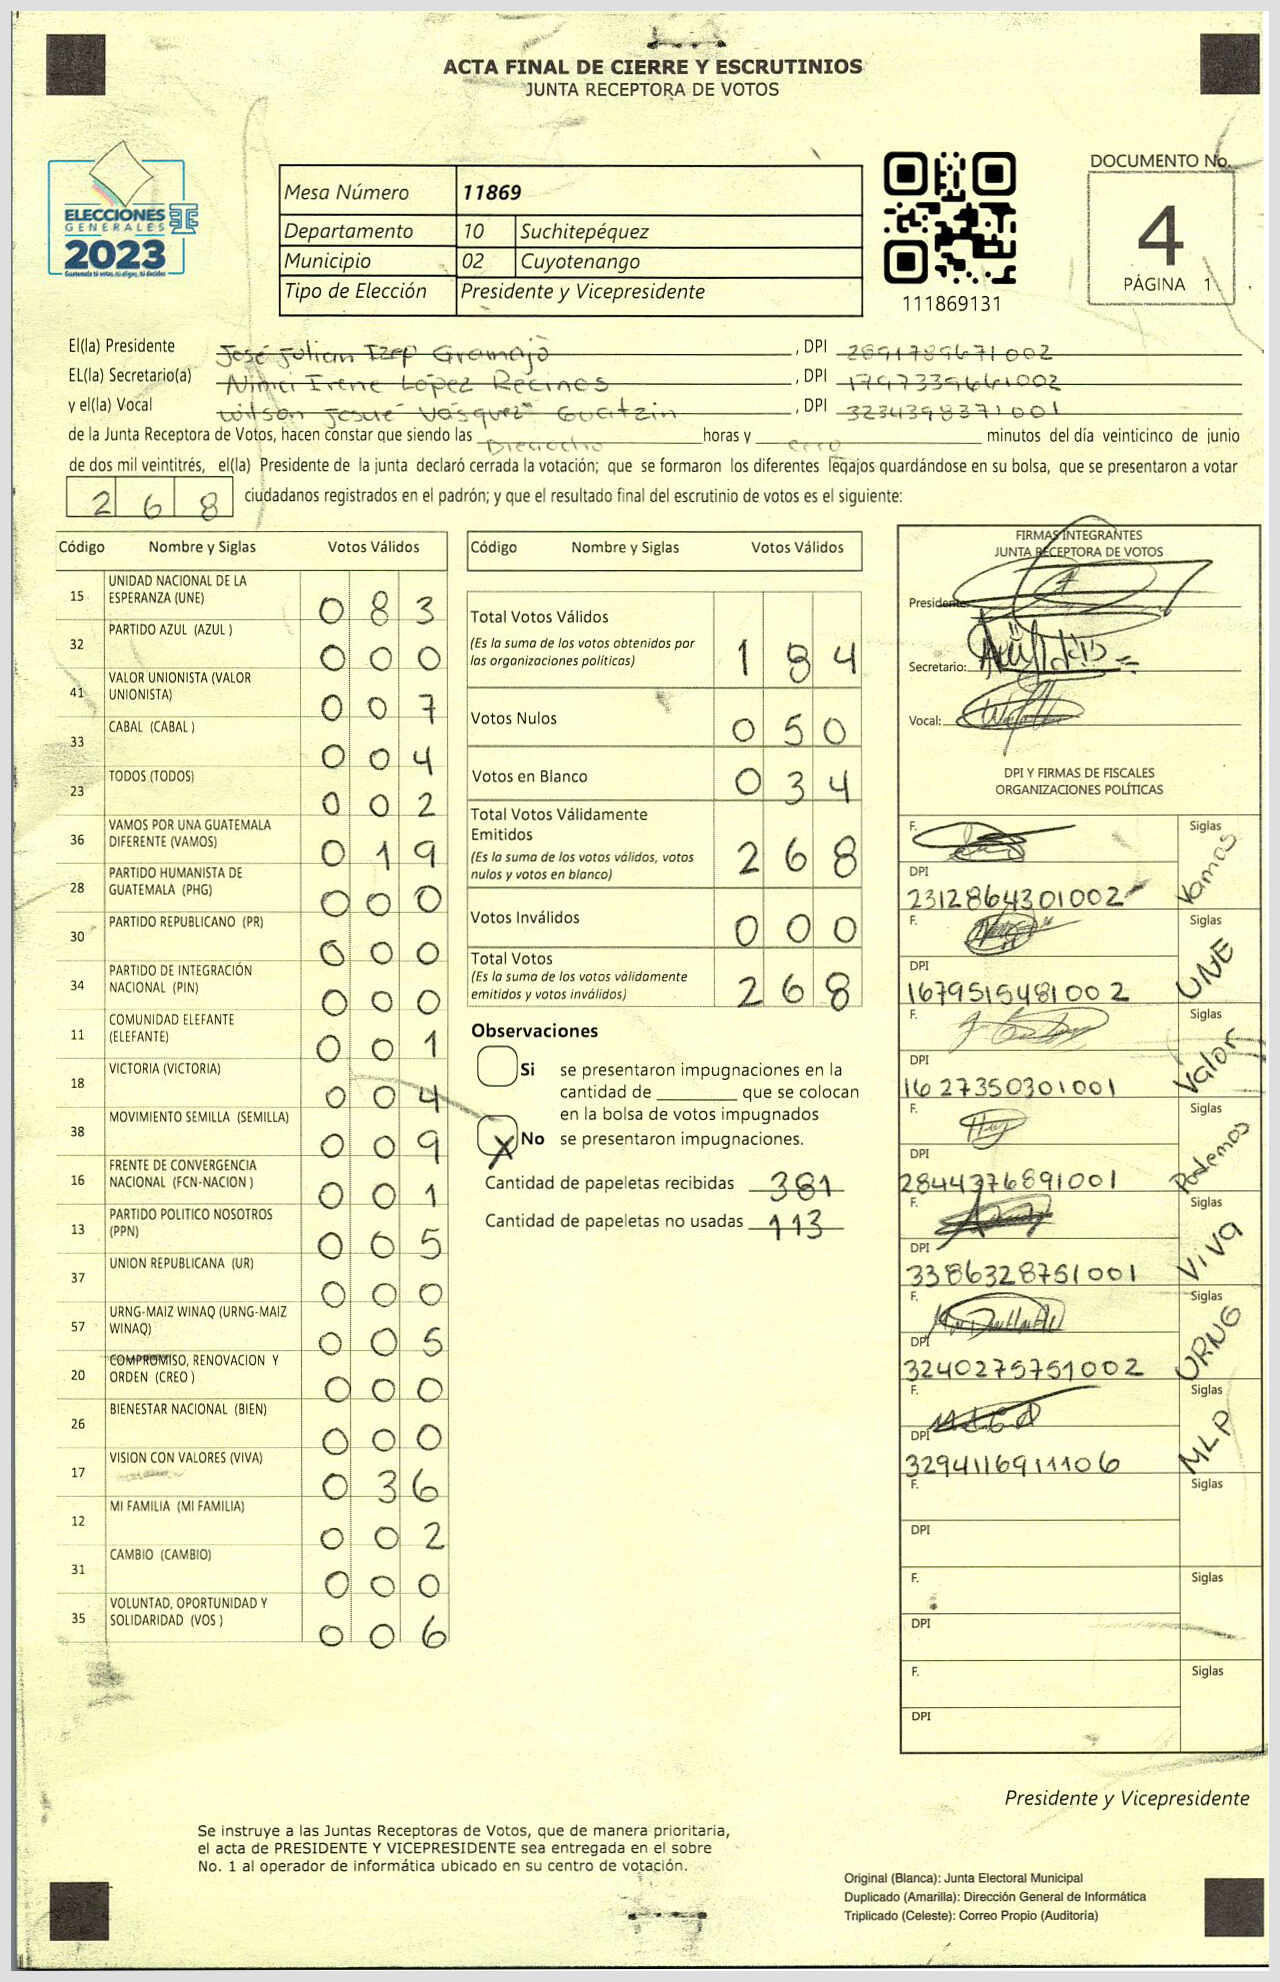 ACTA FINAL DE CIERRE Y ESCRUTINIOS
JUNTA RECEPTORA DE VOTOS
ELECCIONES
GENERALES
2023
Guatemala tú votas, tú eliges, tú decides
Mesa Número 11869
Departamento 10 Suchitepéquez
Municipio 02 Cuyotenango
Tipo de Elección Presidente y Vicepresidente
111869131
DOCUMENTO No.
4
PÁGINA 1
El(la) Presidente José Julian Izep Gramajo , DPI 2891789671002
EL(la) Secretario(a) Nimci Irene López Recinos , DPI 1797339661002
y el(la) Vocal Wilson Josué Vásquez Guitzin , DPI 3234398371001
de la Junta Receptora de Votos, hacen constar que siendo las Dieciocho horas y cero minutos del día veinticinco de junio
de dos mil veintitrés, el(la) Presidente de la junta declaró cerrada la votación; que se formaron los diferentes legajos guardándose en su bolsa, que se presentaron a votar
268 ciudadanos registrados en el padrón; y que el resultado final del escrutinio de votos es el siguiente:
Código Nombre y Siglas Votos Válidos
15 UNIDAD NACIONAL DE LA ESPERANZA (UNE) 083
32 PARTIDO AZUL (AZUL ) 000
41 VALOR UNIONISTA (VALOR UNIONISTA) 007
33 CABAL (CABAL ) 004
23 TODOS (TODOS) 002
36 VAMOS POR UNA GUATEMALA DIFERENTE (VAMOS) 019
28 PARTIDO HUMANISTA DE GUATEMALA (PHG) 000
30 PARTIDO REPUBLICANO (PR) 000
34 PARTIDO DE INTEGRACIÓN NACIONAL (PIN) 000
11 COMUNIDAD ELEFANTE (ELEFANTE) 001
18 VICTORIA (VICTORIA) 004
38 MOVIMIENTO SEMILLA (SEMILLA) 009
16 FRENTE DE CONVERGENCIA NACIONAL (FCN-NACION ) 001
13 PARTIDO POLITICO NOSOTROS (PPN) 005
37 UNION REPUBLICANA (UR) 000
57 URNG-MAIZ WINAQ (URNG-MAIZ WINAQ) 005
20 COMPROMISO, RENOVACION Y ORDEN (CREO ) 000
26 BIENESTAR NACIONAL (BIEN) 000
17 VISION CON VALORES (VIVA) 036
12 MI FAMILIA (MI FAMILIA) 002
31 CAMBIO (CAMBIO) 000
35 VOLUNTAD, OPORTUNIDAD Y SOLIDARIDAD (VOS ) 006
Código Nombre y Siglas Votos Válidos
Total Votos Válidos 184
(Es la suma de los votos obtenidos por
las organizaciones políticas)
Votos Nulos 050
Votos en Blanco 034
Total Votos Válidamente
Emitidos 268
(Es la suma de los votos válidos, votos
nulos y votos en blanco)
Votos Inválidos 000
Total Votos 268
(Es la suma de los votos válidamente
emitidos y votos inválidos)
Observaciones
Si se presentaron impugnaciones en la
cantidad de ________ que se colocan
en la bolsa de votos impugnados
X No se presentaron impugnaciones.
Cantidad de papeletas recibidas 381
Cantidad de papeletas no usadas 113
FIRMAS INTEGRANTES
JUNTA RECEPTORA DE VOTOS
Presidente:
Secretario:
Vocal:
DPI Y FIRMAS DE FISCALES
ORGANIZACIONES POLÍTICAS
F. Siglas Vamos
DPI
2312864301002
F. Siglas UNE
DPI
1679515481002
F. Siglas Valor
DPI
1627350301001
F. Siglas Podemos
DPI
2844376891001
F. Siglas Viva
DPI
3386328751001
F. Siglas URNG
DPI
3240275751002
F. Siglas MLP
DPI
3294116911106
F. Siglas
DPI
F. Siglas
DPI
F. Siglas
DPI
Presidente y Vicepresidente
Se instruye a las Juntas Receptoras de Votos, que de manera prioritaria,
el acta de PRESIDENTE Y VICEPRESIDENTE sea entregada en el sobre
No. 1 al operador de informática ubicado en su centro de votación.
Original (Blanca): Junta Electoral Municipal
Duplicado (Amarilla): Dirección General de Informática
Triplicado (Celeste): Correo Propio (Auditoría)